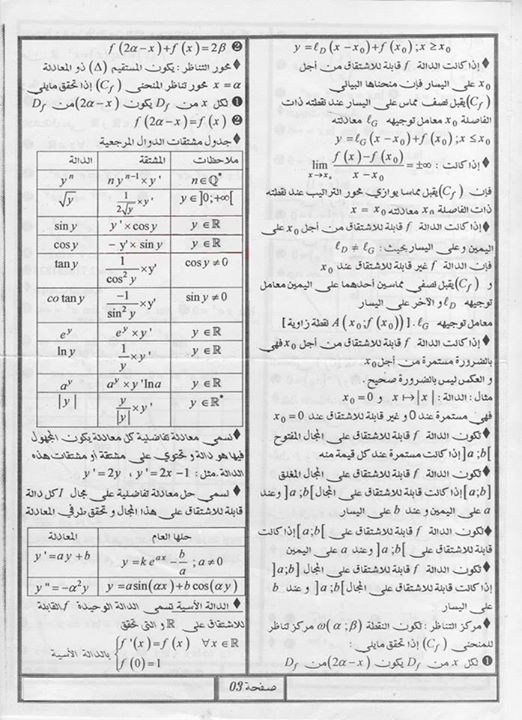 y = ℓ_D (x − x₀) + f(x₀) ; x ≥ x₀
♦ إذا كانت الدالة f قابلة للاشتقاق من أجل
x₀ على اليسار فإن منحناها البياني
(C_f) يقبل نصف مماس على اليسار عند نقطته ذات
الفاصلة x₀ معامل توجيهه ℓ_G ومعادلته
y = ℓ_G (x − x₀) + f(x₀) ; x ≤ x₀
♦ إذا كانت : lim_{x→x₀} (f(x) − f(x₀))/(x − x₀) = ±∞
فإن (C_f) يقبل مماسا يوازي محور التراتيب عند نقطته
ذات الفاصلة x₀ معادلته x = x₀
♦ إذا كانت الدالة f قابلة للاشتقاق من أجل x₀ على
اليمين وعلى اليسار بحيث : ℓ_D ≠ ℓ_G
فإن الدالة f غير قابلة للاشتقاق عند x₀
و (C_f) يقبل نصفي مماسين أحدهما على اليمين معامل
توجيهه ℓ_D و الآخر على اليسار
معامل توجيهه ℓ_G . [ A(x₀ ; f(x₀)) نقطة زاوية ]
♦ إذا كانت الدالة f قابلة للاشتقاق من أجل x₀ فهي
بالضرورة مستمرة من أجل x₀
و العكس ليس بالضرورة صحيح .
مثال : الدالة : x ↦ |x| و x₀ = 0
فهي مستمرة عند 0 و غير قابلة للاشتقاق عند x₀ = 0
♦ تكون الدالة f قابلة للاشتقاق على المجال المفتوح
]a;b[ إذا كانت مستمرة عند كل قيمة منه
♦ تكون الدالة f قابلة للاشتقاق على المجال المغلق
[a;b] إذا كانت قابلة للاشتقاق على المجال ]a;b[ وعند
a على اليمين وعند b على اليسار
♦ تكون الدالة f قابلة للاشتقاق على [a;b[ إذا كانت
قابلة للاشتقاق على ]a;b[ وعند a على اليمين
♦ تكون الدالة f قابلة للاشتقاق على المجال ]a;b]
إذا كانت قابلة للاشتقاق على ]a;b[ و عند b
على اليسار
♦ مركز التناظر : تكون النقطة ω(α ; β) مركز تناظر
للمنحنى (C_f) إذا تحقق مايلي :
❶ لكل x من D_f يكون (2α − x) من D_f
❷ f(2α − x) + f(x) = 2β
♦ محور التناظر : يكون المستقيم (Δ) ذو المعادلة
x = α محور تناظر المنحنى (C_f) إذا تحقق مايلي
❶ لكل x من D_f يكون (2α − x) من D_f
❷ f(2α − x) = f(x)
♦ جدول مشتقات الدوال المرجعية
الدالة المشتقة ملاحظات
yⁿ n yⁿ⁻¹ × y' n ∈ ℚ*
√y 1/(2√y) × y' y ∈ ]0;+∞[
sin y y' × cos y y ∈ ℝ
cos y − y' × sin y y ∈ ℝ
tan y 1/cos² y × y' cos y ≠ 0
co tan y −1/sin² y × y' sin y ≠ 0
e^y e^y × y' y ∈ ℝ
ln y 1/y × y' y ∈ ℝ
a^y a^y × y' ln a y ∈ ℝ
|y| y/|y| × y' y ∈ ℝ*
♦ تسمى معادلة تفاضلية كل معادلة يكون المجهول
فيها هو دالة و تحتوي على مشتقة أو مشتقات هذه
الدالة . مثل : y' = 2y ، y' = 2x − 1
♦ تسمى حل معادلة تفاضلية على مجال I كل دالة
قابلة للاشتقاق على هذا المجال و تحقق طرفي المعادلة
المعادلة حلها العام
y' = ay + b y = k e^{ax} − b/a ; a ≠ 0
y'' = −α² y y = a sin(αx) + b cos(αy)
♦ الدالة الأسية تسمى الدالة الوحيدة f القابلة
للاشتقاق على ℝ و التي تحقق
{ f'(x) = f(x) ∀x ∈ ℝ
f(0) = 1 بالدالة الأسية
صفحة 03